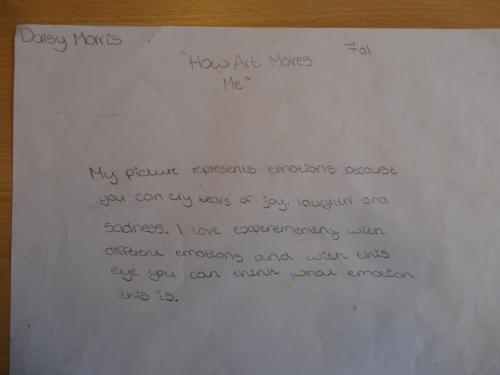 Daisy Morris
7a1
"How Art Moves
Me"
My picture represents emotions because
you can cry tears of joy, laughter and
sadness. I love experementing with
different emotions and with this
eye you can think what emotion
this is.